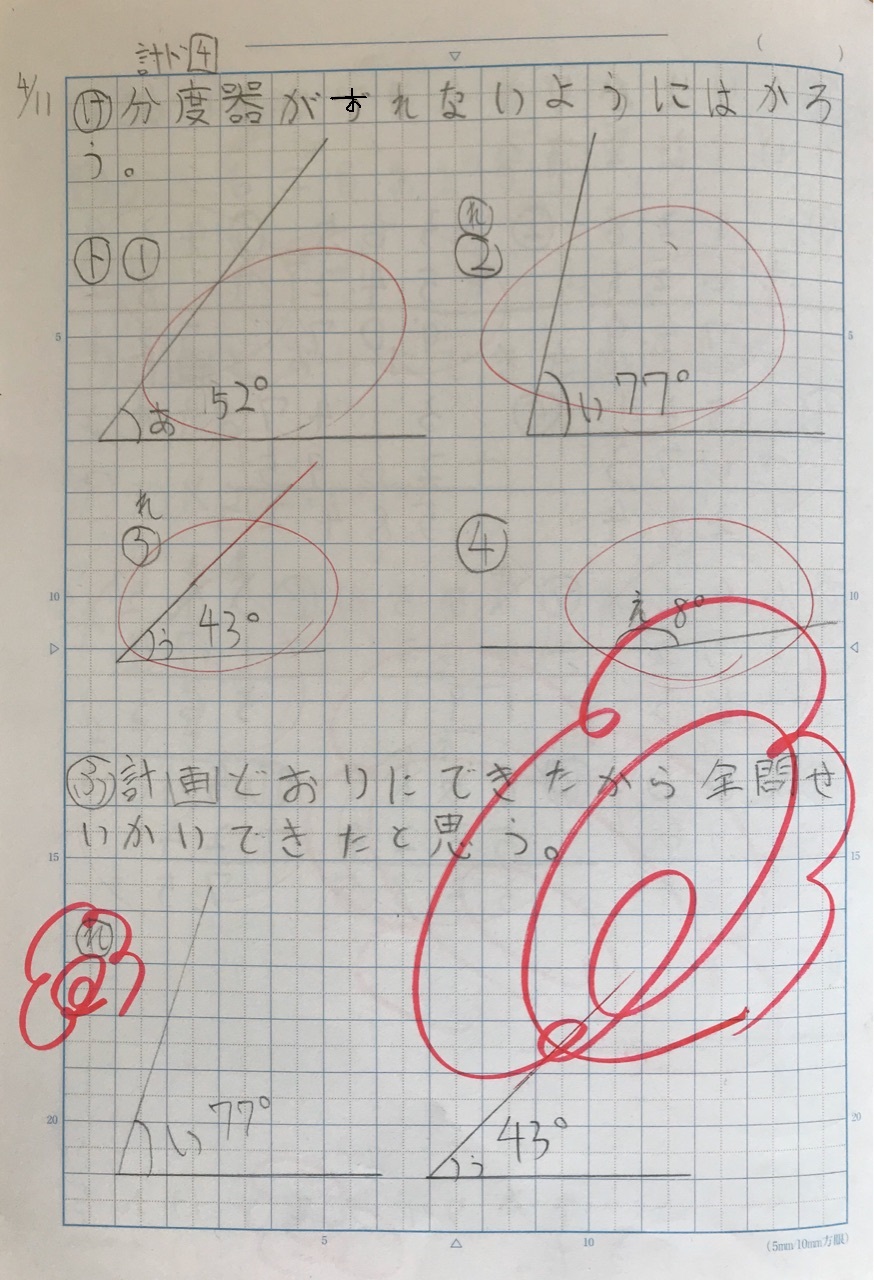 計ド4
4/11
け 分度器がずれないようにはかろ
う。
ト ①
れ
②
あ 52°
い 77°
れ
③
④
う 43°
え 8°
ふ 計画どおりにできたから全問せ
いかいできたと思う。
れ
い 77°
う 43°
5
5
10
10
15
15
20
20
5
10
(5mm 10mm方眼)